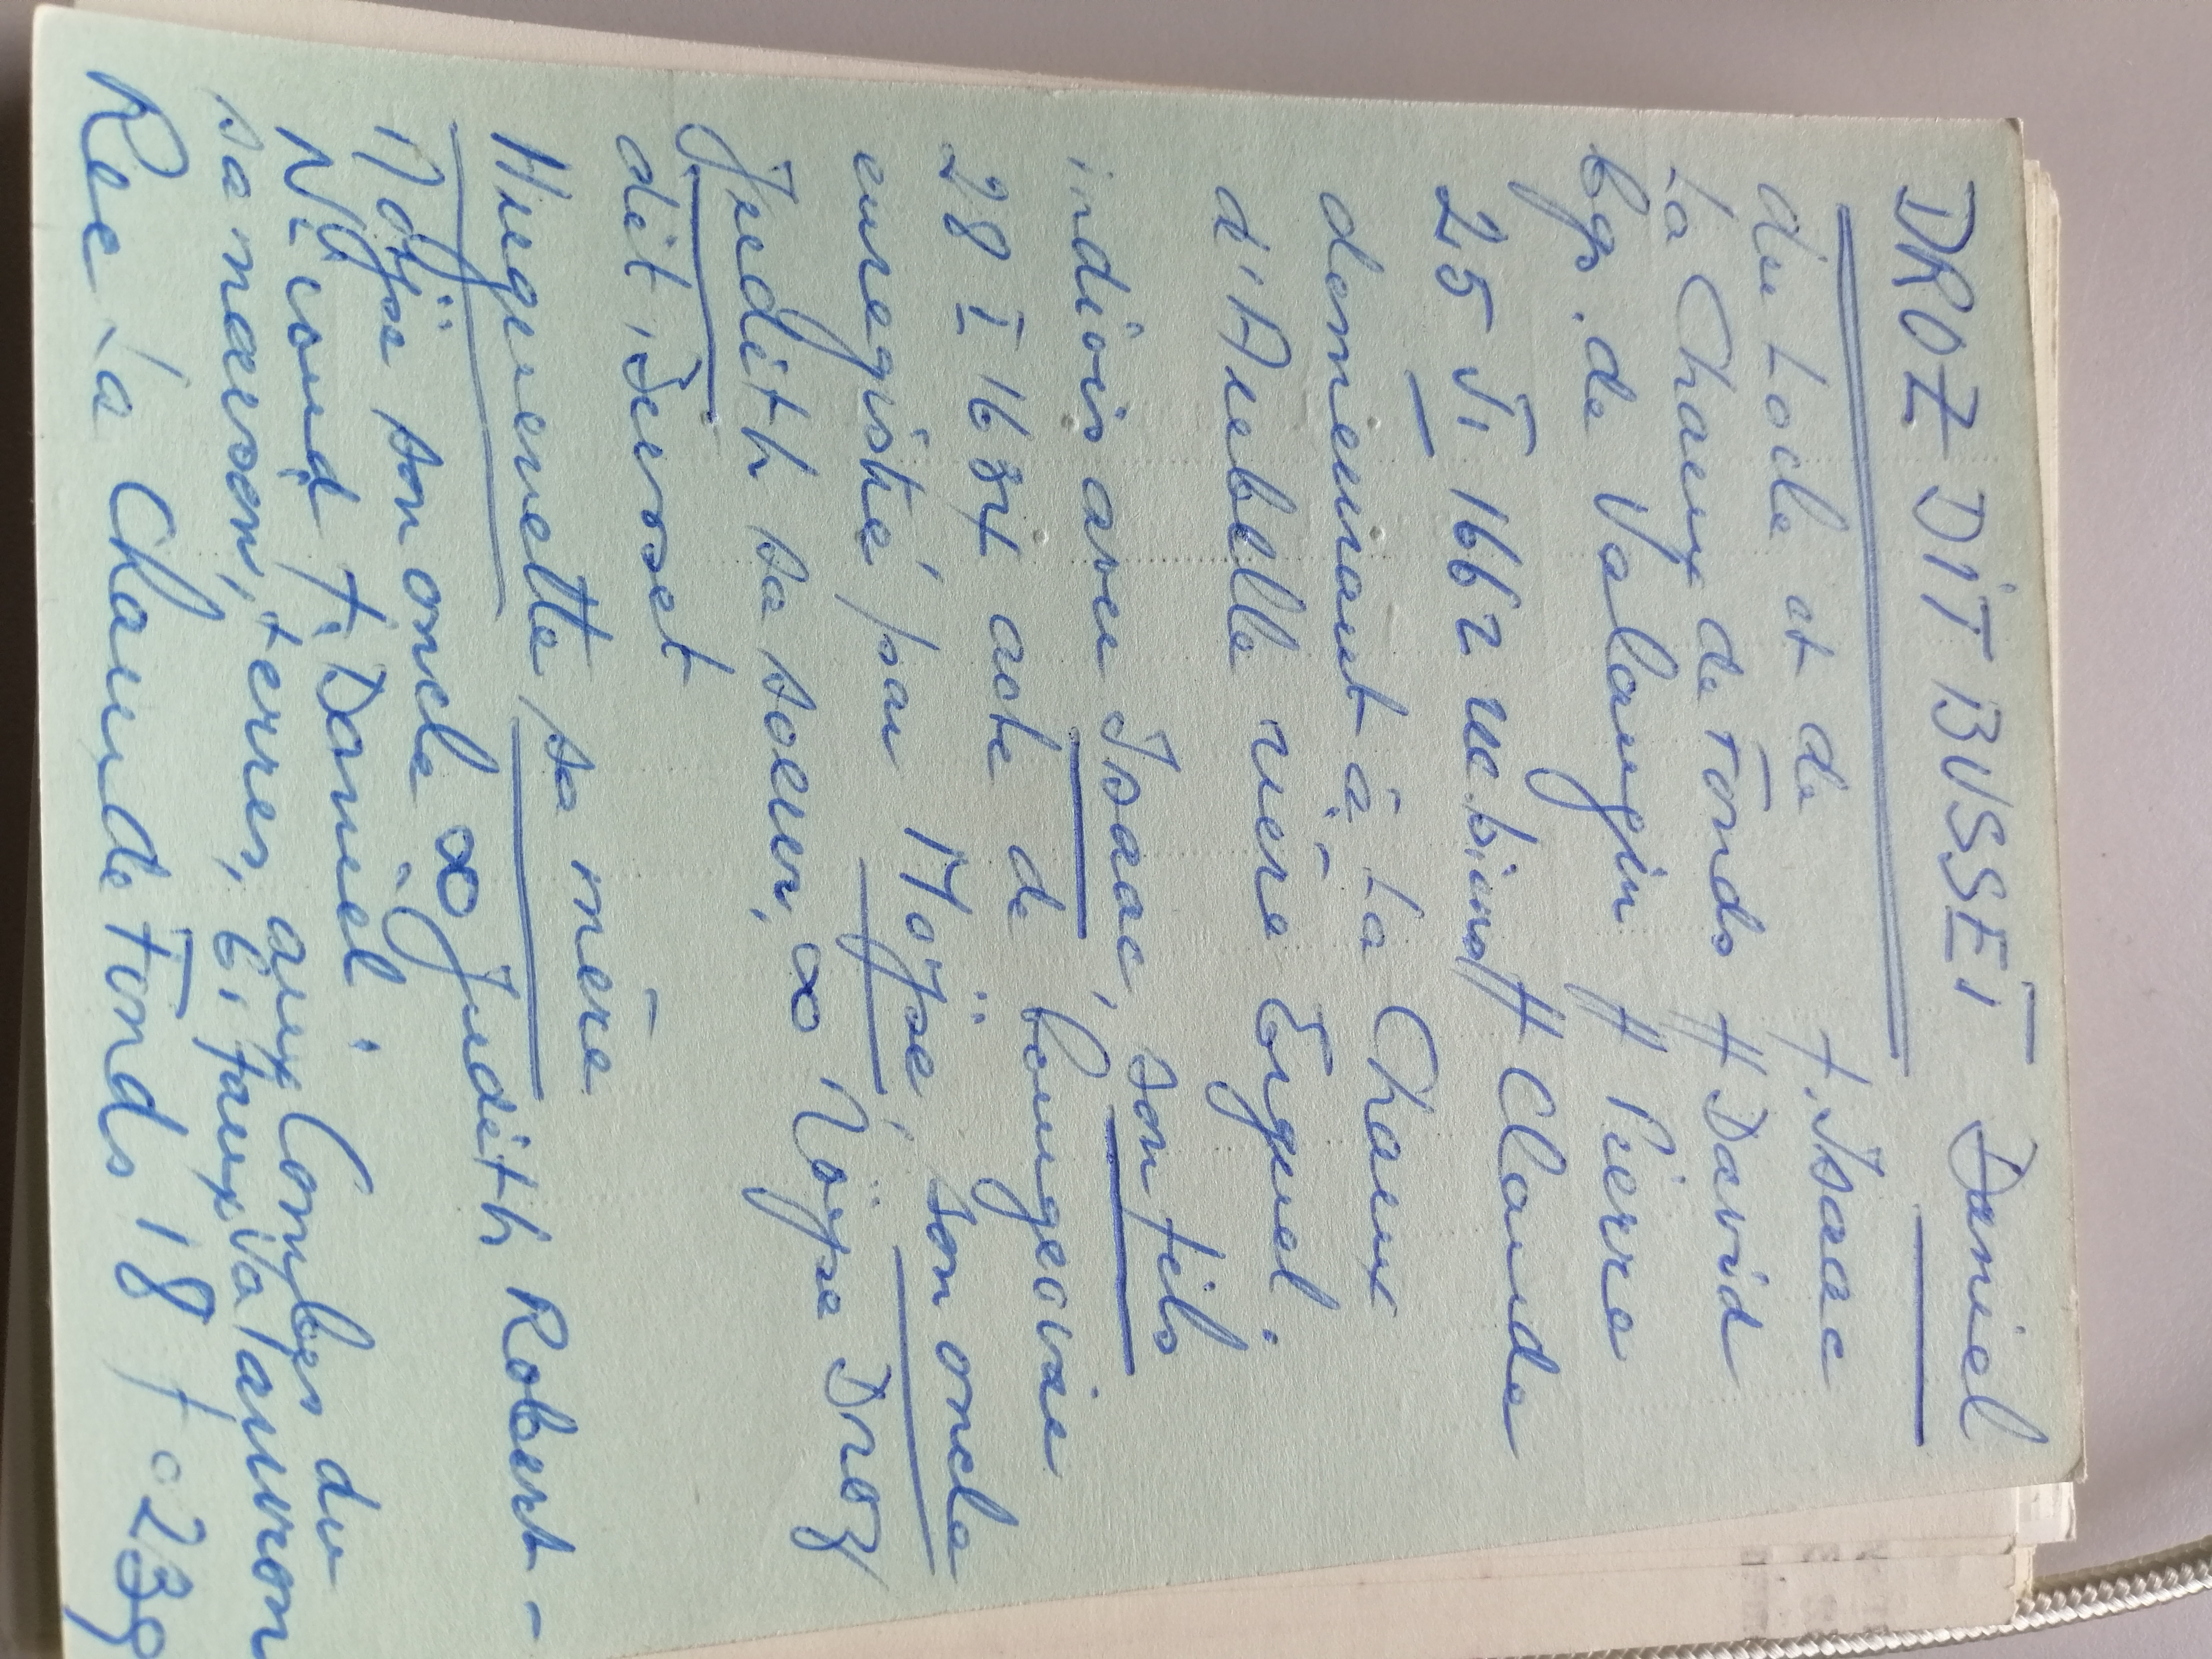 DROZ DIT BUSSET, Daniel
du Locle et de f. Isaac
La Chaux de Fonds ff David
bgs. de Valangin ff Pierre
25 VI 1662 ff Claude
domeurant à La Chaux
d'Abelle rière Erguel.
indivis avec Isaac, son fils
28 I 1684 acte de bourgeoisie
enregistré par Moÿse, son oncle
Judith sa soeur, ∞ Moÿse Droz
dit Busset
Huguenette, sa mère
Moÿse son oncle ∞ Judith Robert-
Nicoud f. Daniel.
sa maison, terres, aux Combes du
Valanvron
Rec La Chaux de Fonds 18 f° 239